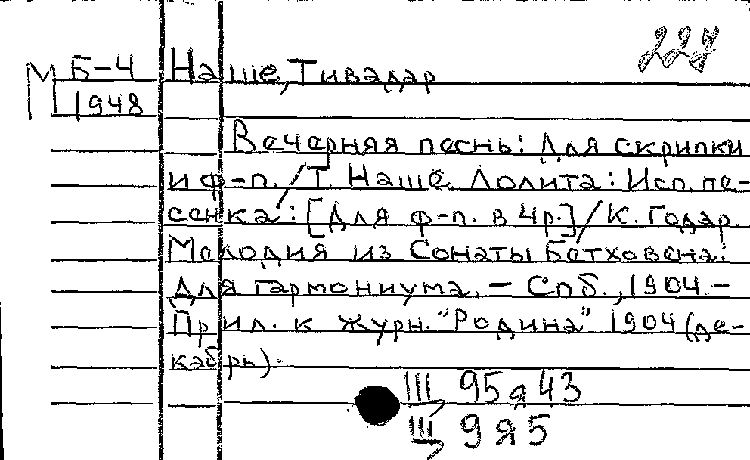 227
М Б-4 Наше, Тивадар
1948
Вечерняя песнь: Для скрипки
и ф-п. / Т. Наше. Лолита: Исп. пе-
сенка: [Для ф-п. в 4р.] / К. Годар.
Мелодия из Сонаты Бетховена:
Для гармониума. - Спб., 1904. -
(Прил. к журн. "Родина" 1904 (де-
кабрь).
Ш 95я43
Ш 9я5